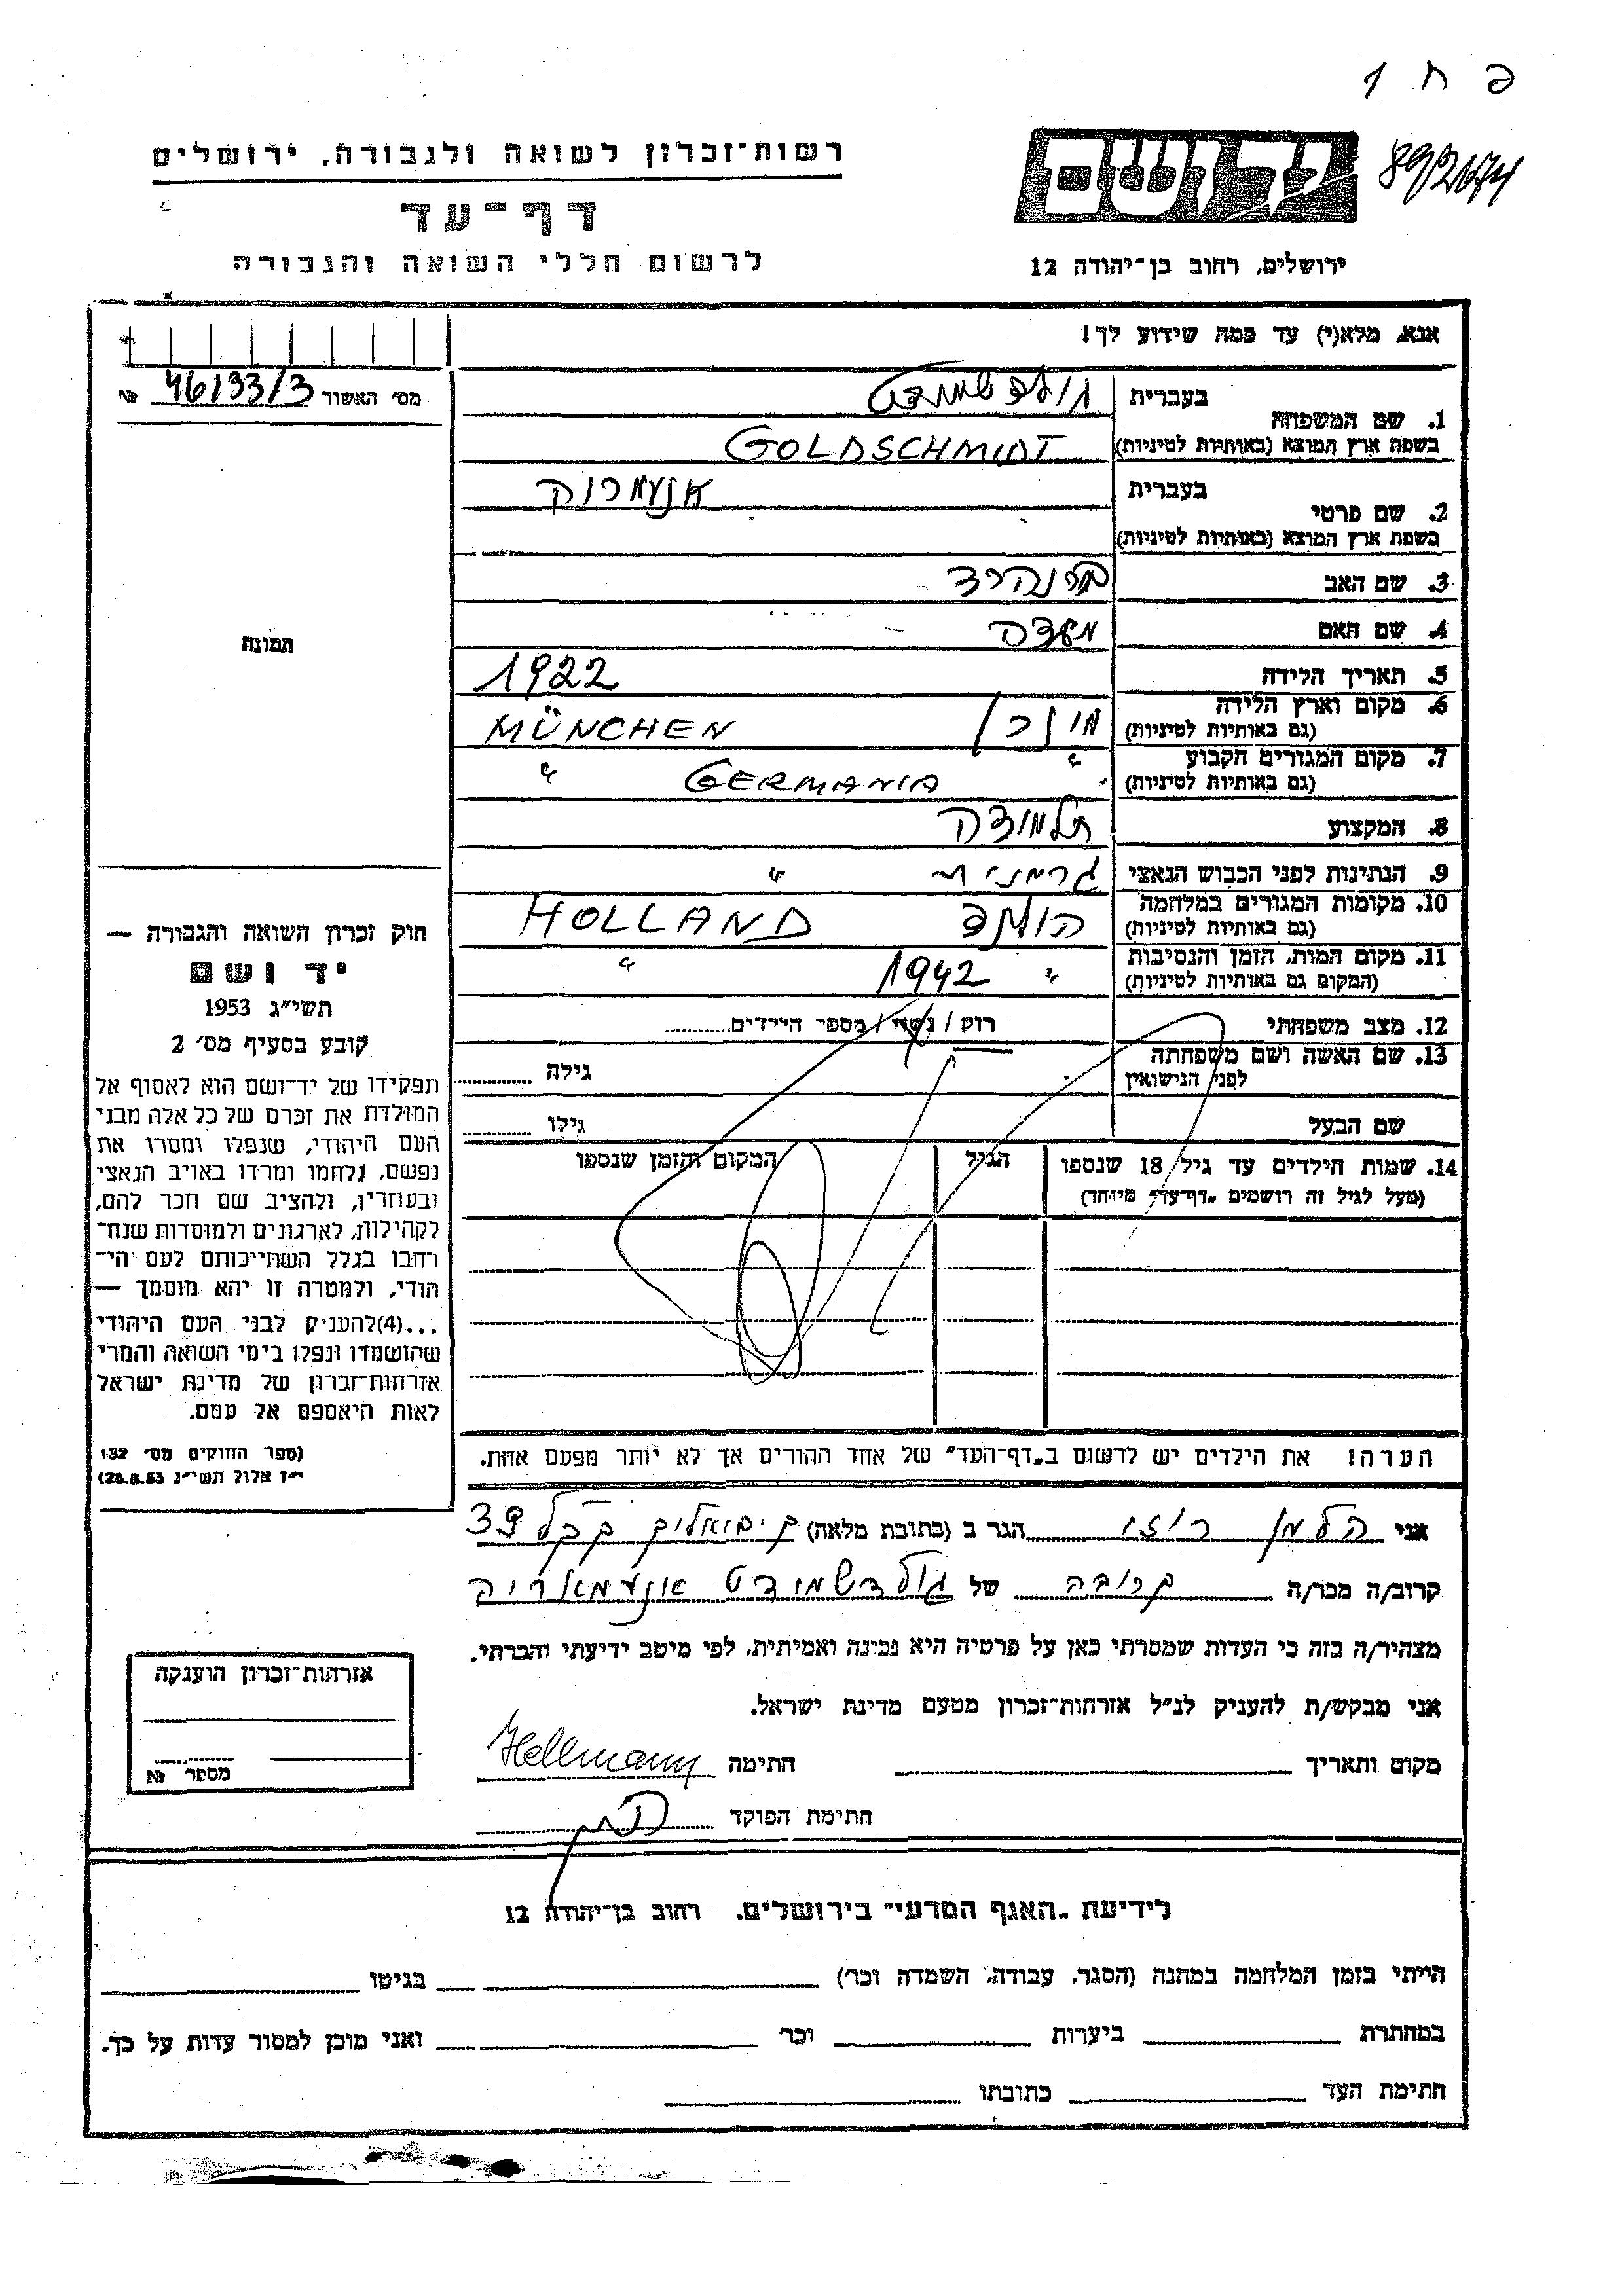 פ ח 1
892674
יד ושם
רשות־זכרון לשואה ולגבורה, ירושלים
דף־עד
לרשום חללי השואה והגבורה
ירושלים, רחוב בן־יהודה 12
אנא, מלא(י) עד כמה שידוע לך!
מס' האשור 46133/3 №
תמונה
1. שם המשפחה
בעברית גולדשמידט
בשפת ארץ המוצא (באותיות לטיניות) GOLDSCHMIDT
2. שם פרטי
בעברית
בשפת ארץ המוצא (באותיות לטיניות)
3. שם האב ברנהרד
4. שם האם
5. תאריך הלידה 1922
6. מקום וארץ הלידה (גם באותיות לטיניות) מינכן MÜNCHEN
7. מקום המגורים הקבוע (גם באותיות לטיניות) " GERMANIA "
8. המקצוע תלמידה
9. הנתינות לפני הכבוש הנאצי גרמנית "
10. מקומות המגורים במלחמה (גם באותיות לטיניות) הולנד HOLLAND
11. מקום המות, הזמן והנסיבות (המקום גם באותיות לטיניות) " 1942 "
12. מצב משפחתי רוק / נשוי / מספר הילדים
13. שם האשה ושם משפחתה לפני הנישואין גילה
שם הבעל גילו
14. שמות הילדים עד גיל 18 שנספו
(מעל לגיל זה רושמים „דף־עד" מיוחד)
הגיל
המקום והזמן שנספו
הערה! את הילדים יש לרשום ב„דף־העד" של אחד ההורים אך לא יותר מפעם אחת.
חוק זכרון השואה והגבורה —
יד ושם
תשי"ג 1953
קובע בסעיף מס' 2
תפקידו של יד־ושם הוא לאסוף אל
המולדת את זכרם של כל אלה מבני
העם היהודי, שנפלו ומסרו את
נפשם, נלחמו ומרדו באויב הנאצי
ובעוזריו, ולהציב שם וזכר להם,
לקהילות, לארגונים ולמוסדות שנח־
רחבו בגלל השתייכותם לעם הי־
הודי, ולמטרה זו יהא מוסמך —
...(4) להעניק לבני העם היהודי
שהושמדו ונפלו בימי השואה והמרי
אזרחות־זכרון של מדינת ישראל
לאות היאספם אל עמם.
(ספר החוקים מס' 132
י"ז אלול תשי"ג 28.8.53)
אני הלמן רוזי הגר ב (כתובת מלאה)
קרוב/ה מכר/ה קרובה של גולדשמידט
מצהיר/ה בזה כי העדות שמסרתי כאן על פרטיה היא נכונה ואמיתית, לפי מיטב ידיעתי והכרתי.
אני מבקש/ת להעניק לנ"ל אזרחות־זכרון מטעם מדינת ישראל.
מקום ותאריך חתימה Hellmann
חתימת הפוקד
אזרחות־זכרון הוענקה
מספר №
לידיעת „האגף המדעי" בירושלים, רחוב בן־יהודה 12
הייתי בזמן המלחמה במחנה (הסגר, עבודה, השמדה וכר') בגיטו
במחתרת ביערות וכר' ואני מוכן למסור עדות על כך.
חתימת העד כתובתו